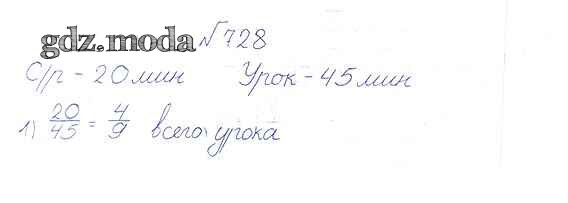 gdz.moda № 728
С/р - 20 мин Урок - 45 мин
1) 20/45 = 4/9 всего урока